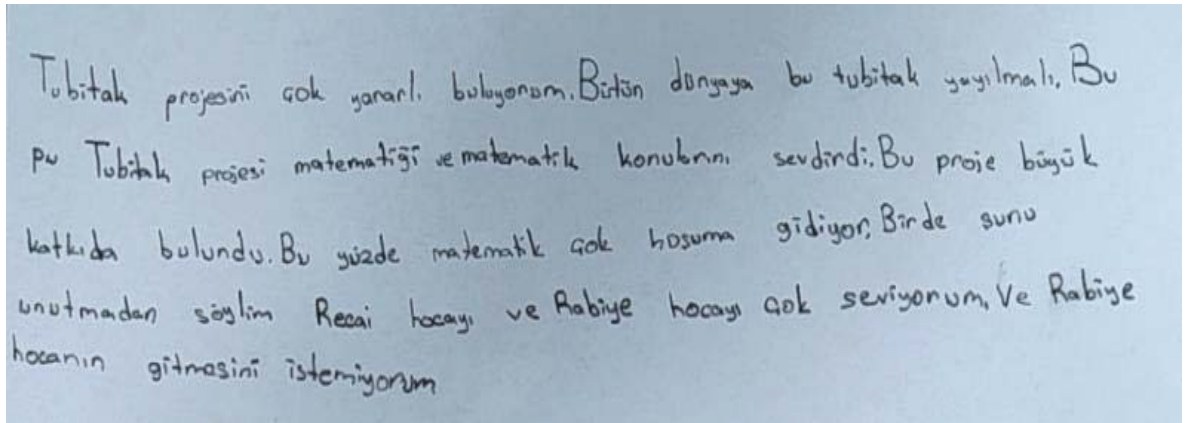 Tubitak projesini çok yararlı buluyorum. Bütün dünyaya bu tubitak yayılmalı. Bu
pu Tubitak projesi matematiği ve matematik konularını sevdirdi. Bu proje büyük
katkıda bulundu. Bu yüzde matematik çok hosuma gidiyor. Bir de sunu
unutmadan söylim Recai hocayı ve Rabiye hocayı çok seviyorum. Ve Rabiye
hocanın gitmesini istemiyorum